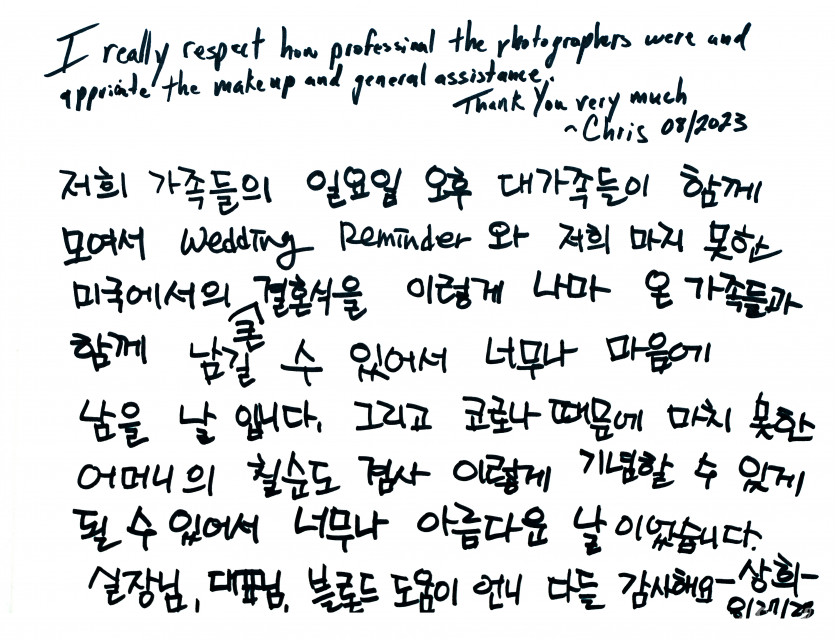 I really respect how professional the photographers were and
appriciate the makeup and general assistance.
Thank You very much
~Chris 08/2023
저희 가족들의 일요일 오후 대가족들이 함께
모여서 Wedding Reminder 와 저희 마지 못한
미국에서의 결혼식을 이렇게 나마 온 가족들과
함께 남길 수 있어서 너무나 마음에
남을 날 입니다. 그리고 코로나 때문에 마치 못한
어머니의 칠순도 겸사 이렇게 기념할 수 있게
될 수 있어서 너무나 아름다운 날 이었습니다.
실장님, 대표님, 블로드 도움이 언니 다들 감사해요 -상희-
8/27/23